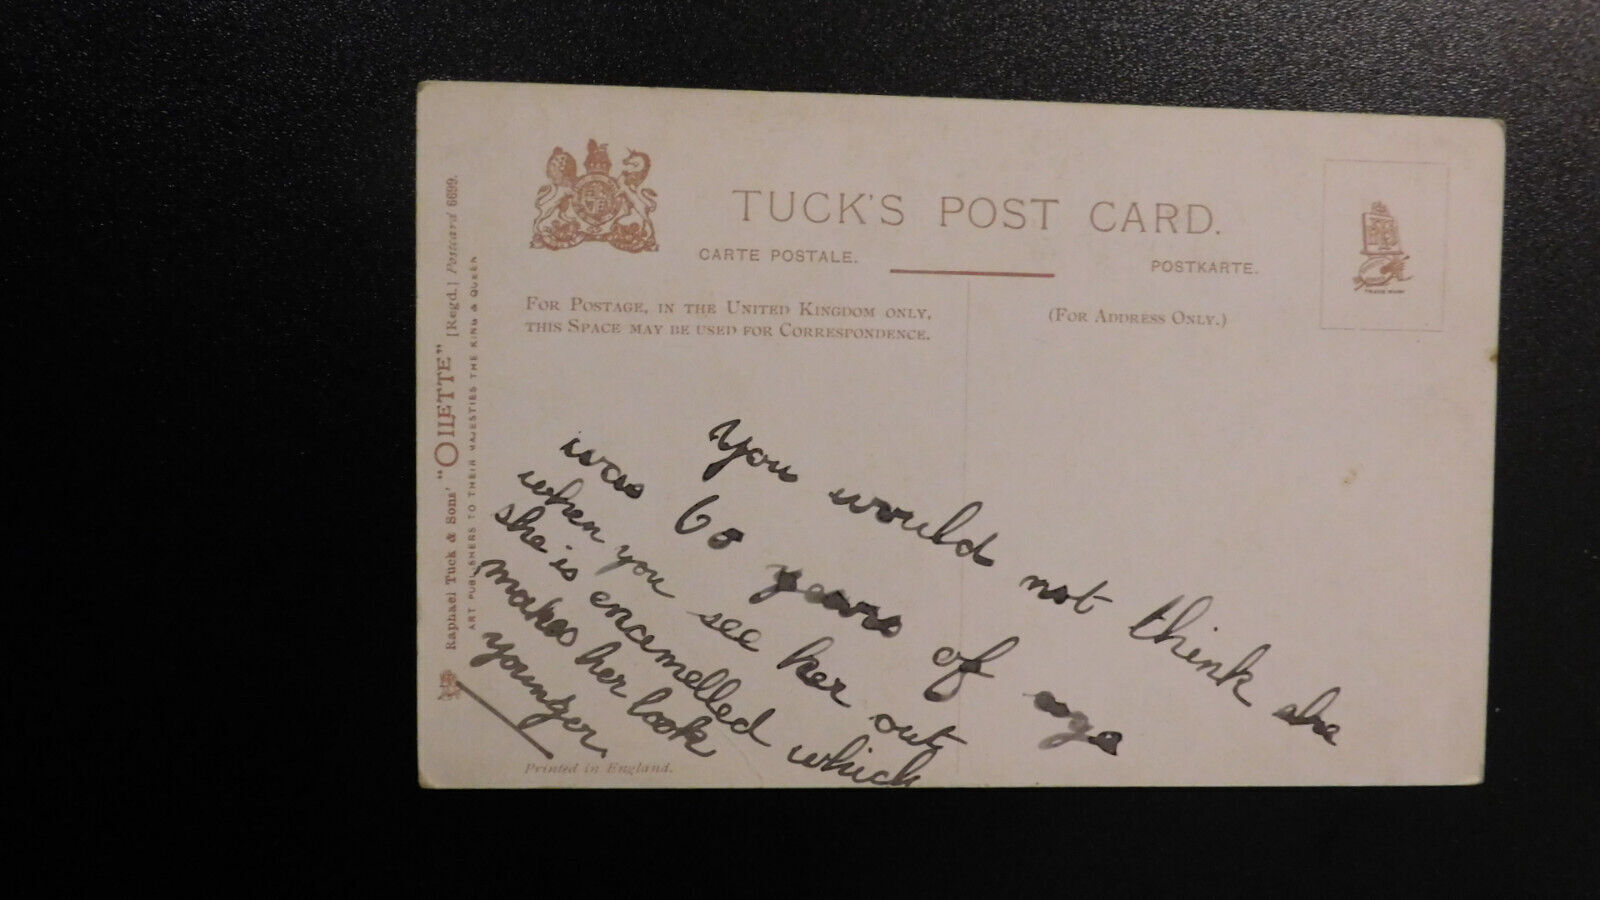 TUCK'S POST CARD.
CARTE POSTALE.
POSTKARTE.
FOR POSTAGE, IN THE UNITED KINGDOM ONLY,
THIS SPACE MAY BE USED FOR CORRESPONDENCE.
(FOR ADDRESS ONLY.)
You would not think she
was 60 years of age
when you see her out
she is enamelled which
makes her look
younger.
Printed in England.
Raphael Tuck & Sons' "OILETTE" [Regd.] Postcard 6699.
ART PUBLISHERS TO THEIR MAJESTIES THE KING & QUEEN
TRADE MARK